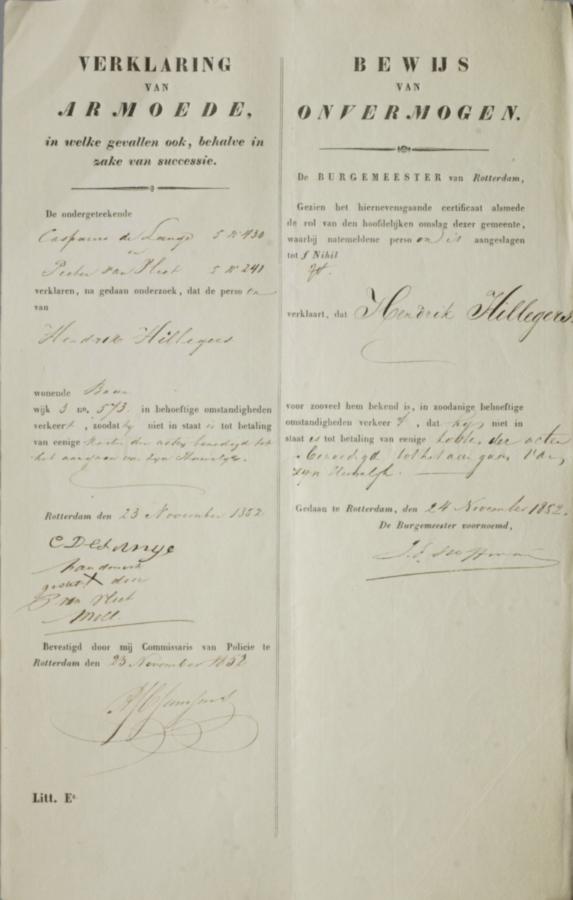 VERKLARING
VAN
ARMOEDE,
in welke gevallen ook, behalve in
zake van successie.
De ondergeteekende
Casparus de Lange S No 430
en
Pieter van Vliet S No 241
verklaren, na gedaan onderzoek, dat de perso on
van
Hendrik Hillegers
wonende
wijk S no. 573. in behoeftige omstandigheden
verkeert, zoodat hij niet in staat is tot betaling
van eenige kosten der acten benoodigd tot
het aangaan van zijn Huwelijk.
Rotterdam den 23 November 1852
C D Lange
handmerk
gesteld X door
P van Vliet
Bevestigd door mij Commissaris van Policie te
Rotterdam den 23 November 1852
Litt. Ea.
BEWIJS
VAN
ONVERMOGEN.
De BURGEMEESTER van Rotterdam,
Gezien het hiernevensgaande certificaat alsmede
de rol van den hoofdelijken omslag dezer gemeente,
waarbij natemeldene perso on is aangeslagen
tot f Nihil
verklaart, dat Hendrik Hillegers
voor zooveel hem bekend is, in zoodanige behoeftige
omstandigheden verkeer t, dat hij niet in
staat is tot betaling van eenige kosten der acten
benoodigd tot het aangaan van
zijn Huwelijk.
Gedaan te Rotterdam, den 24 November 1852.
De Burgemeester voornoemd,